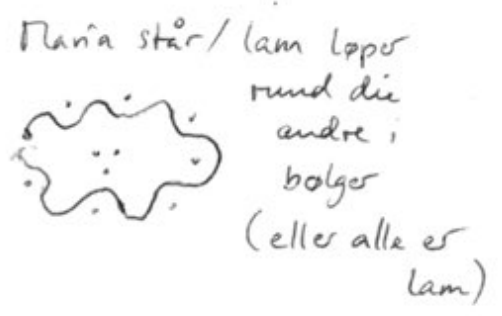 Maria står / lam løper
rund die
andre i
bølger
(eller alle er
lam)